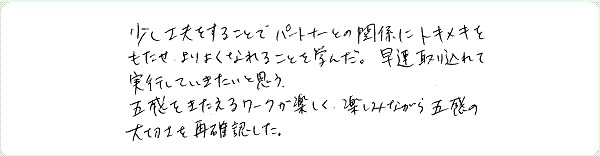 少し工夫をすることでパートナーとの関係にトキメキを
もたせ、よりよくなれることを学んだ。早速取り込れて
実行していきたいと思う。
五感をきたえるワークが楽しく、楽しみながら五感の
大切さを再確認した。